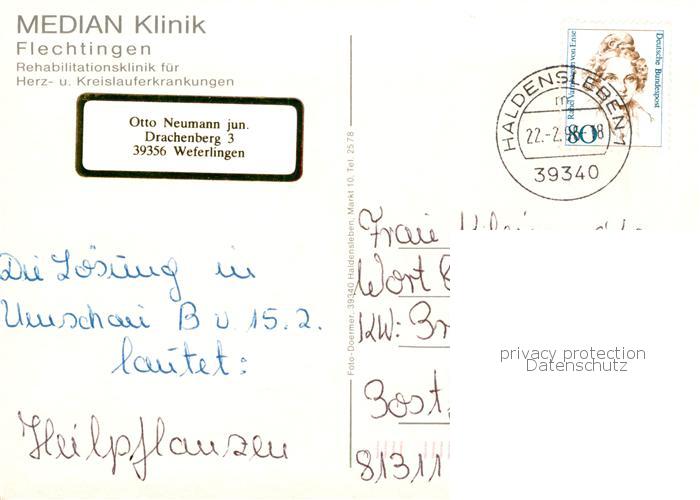 MEDIAN Klinik
Flechtingen
Rehabilitationsklinik für
Herz- u. Kreislauferkrankungen
Otto Neumann jun.
Drachenberg 3
39356 Weferlingen
Die Lösung in
Umschau B v 15.2.
lautet:
Heilpflanzen
Foto-Doermer, 39340 Haldensleben, Markt 10, Tel. 25 78
Deutsche Bundespost
Rahel Varnhagen von Ense
80
HALDENSLEBEN 1
22.-2.
39340
Frau
Wort
KW:
Post
81311
privacy protection
Datenschutz